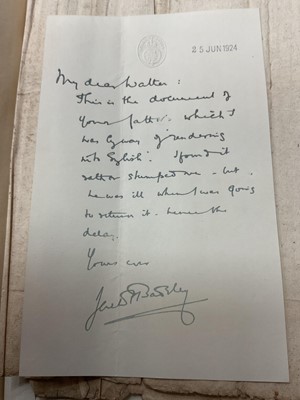 25 JUN 1924
My dear Walter:
This is the document of
your father's which I
was by way of "rendering
into English". I found it
rather stumped me - but
he was ill when I was going
to return it. Hence the
delay.
Yours ever